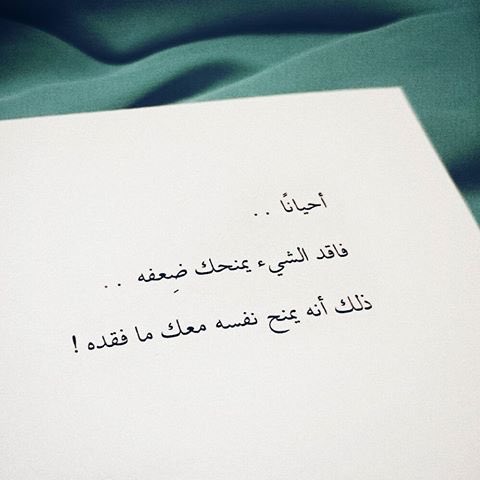 أحيانًا ..
فاقد الشيء يمنحك ضِعفه ..
ذلك أنه يمنح نفسه معك ما فقده !